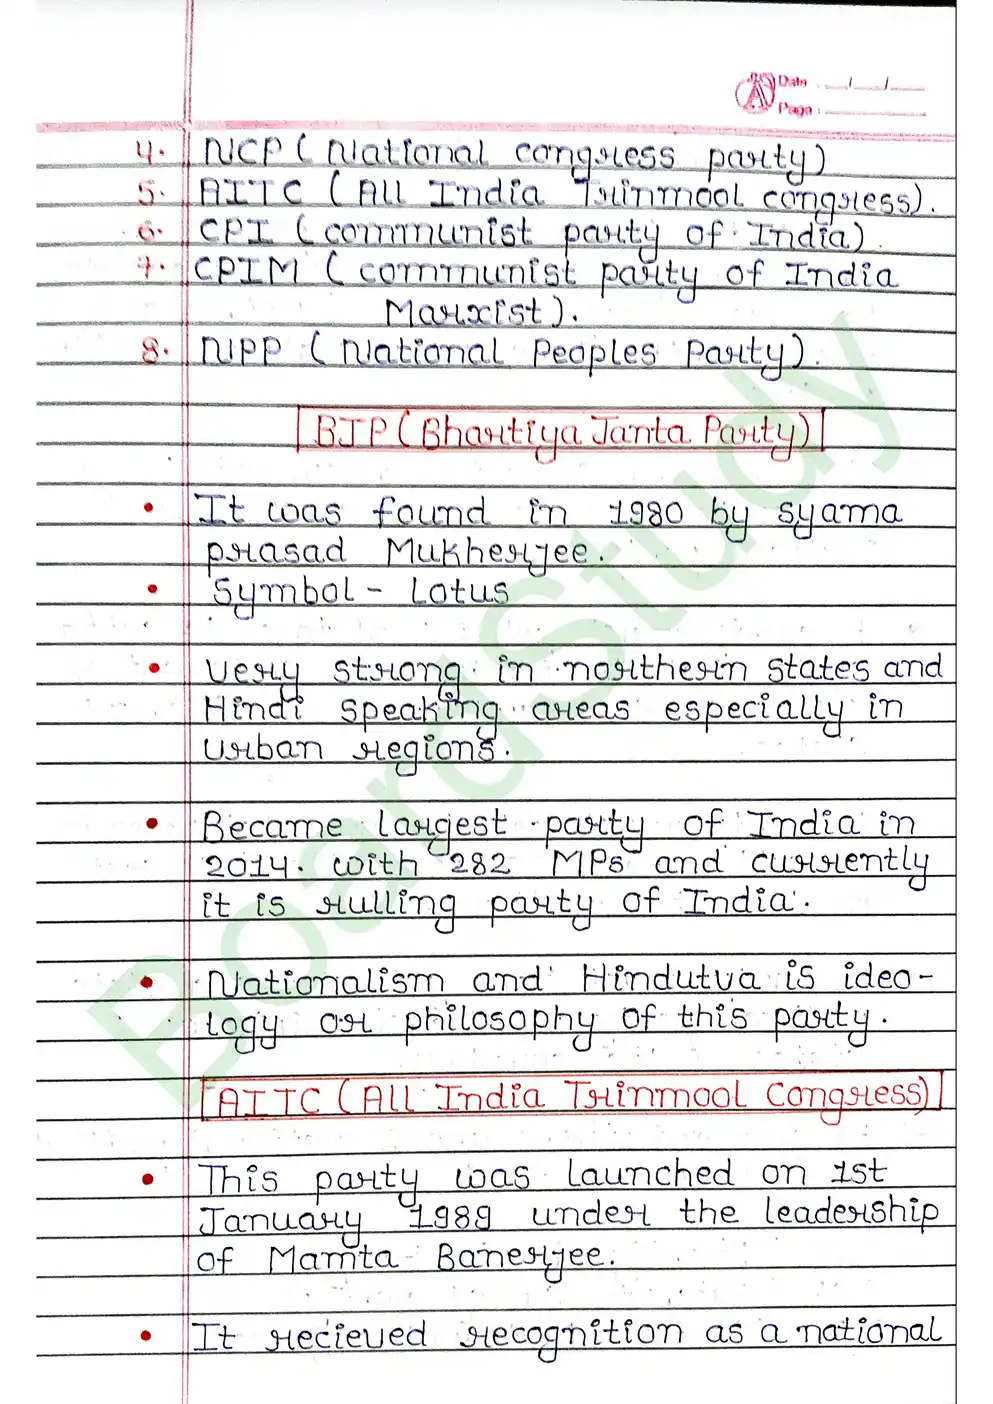 Date : __/__/__
Page :
4. NCP ( National congress party)
5. AITC ( All India Trinmool congress).
6. CPI ( communist party of India)
7. CPIM ( communist party of India
Marxist).
8. NPP ( National Peoples Party).
BJP ( Bhartiya Janta Party)
• It was found in 1980 by syama
prasad Mukherjee.
• Symbol - Lotus
• Very strong in northern states and
Hindi speaking areas especially in
urban regions.
• Became largest party of India in
2014. with 282 MPs and currently
it is rulling party of India.
• Nationalism and Hindutva is ideo-
logy or philosophy of this party.
AITC ( All India Trinmool Congress)
• This party was launched on 1st
January 1989 under the leadership
of Mamta Banerjee.
• It recieved recognition as a national
BoardStudy